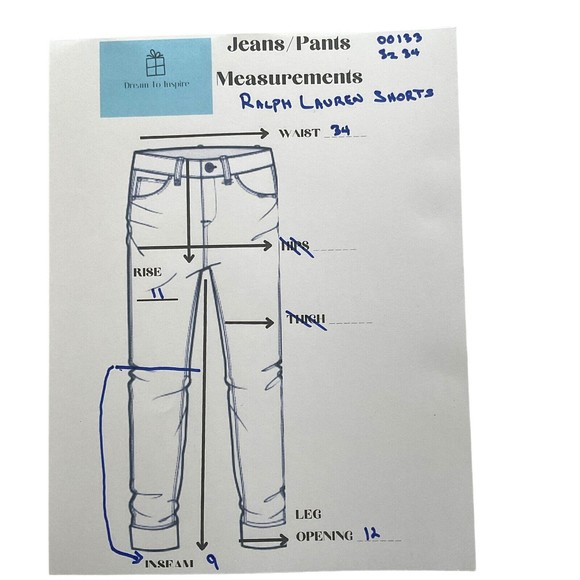 Dream To Inspire
Jeans/Pants
00133
Measurements
SZ 34
RALPH LAUREN SHORTS
WAIST 34
HIPS
RISE
11
THIGH
LEG
OPENING 12
INSEAM 9